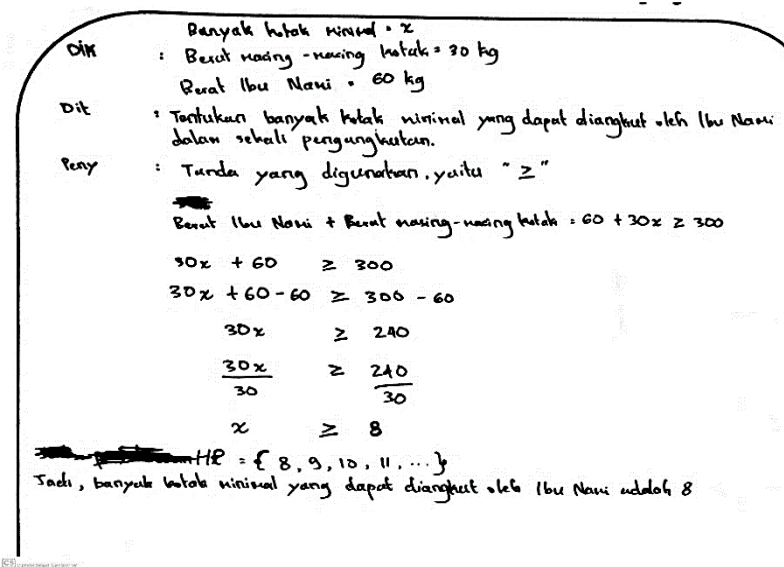 Banyak kotak minimal = x
Dik : Berat masing-masing kotak = 30 kg
Berat Ibu Nani = 60 kg
Dit : Tentukan banyak kotak minimal yang dapat diangkut oleh Ibu Nani
dalam sekali pengangkutan.
Peny : Tanda yang digunakan, yaitu " ≥ "
Berat Ibu Nani + Berat masing-masing kotak = 60 + 30x ≥ 300
30x + 60 ≥ 300
30x + 60 - 60 ≥ 300 - 60
30x ≥ 240
30x ≥ 240
30 30
x ≥ 8
HP = { 8, 9, 10, 11, ... }
Jadi, banyak kotak minimal yang dapat diangkut oleh Ibu Nani adalah 8
CS